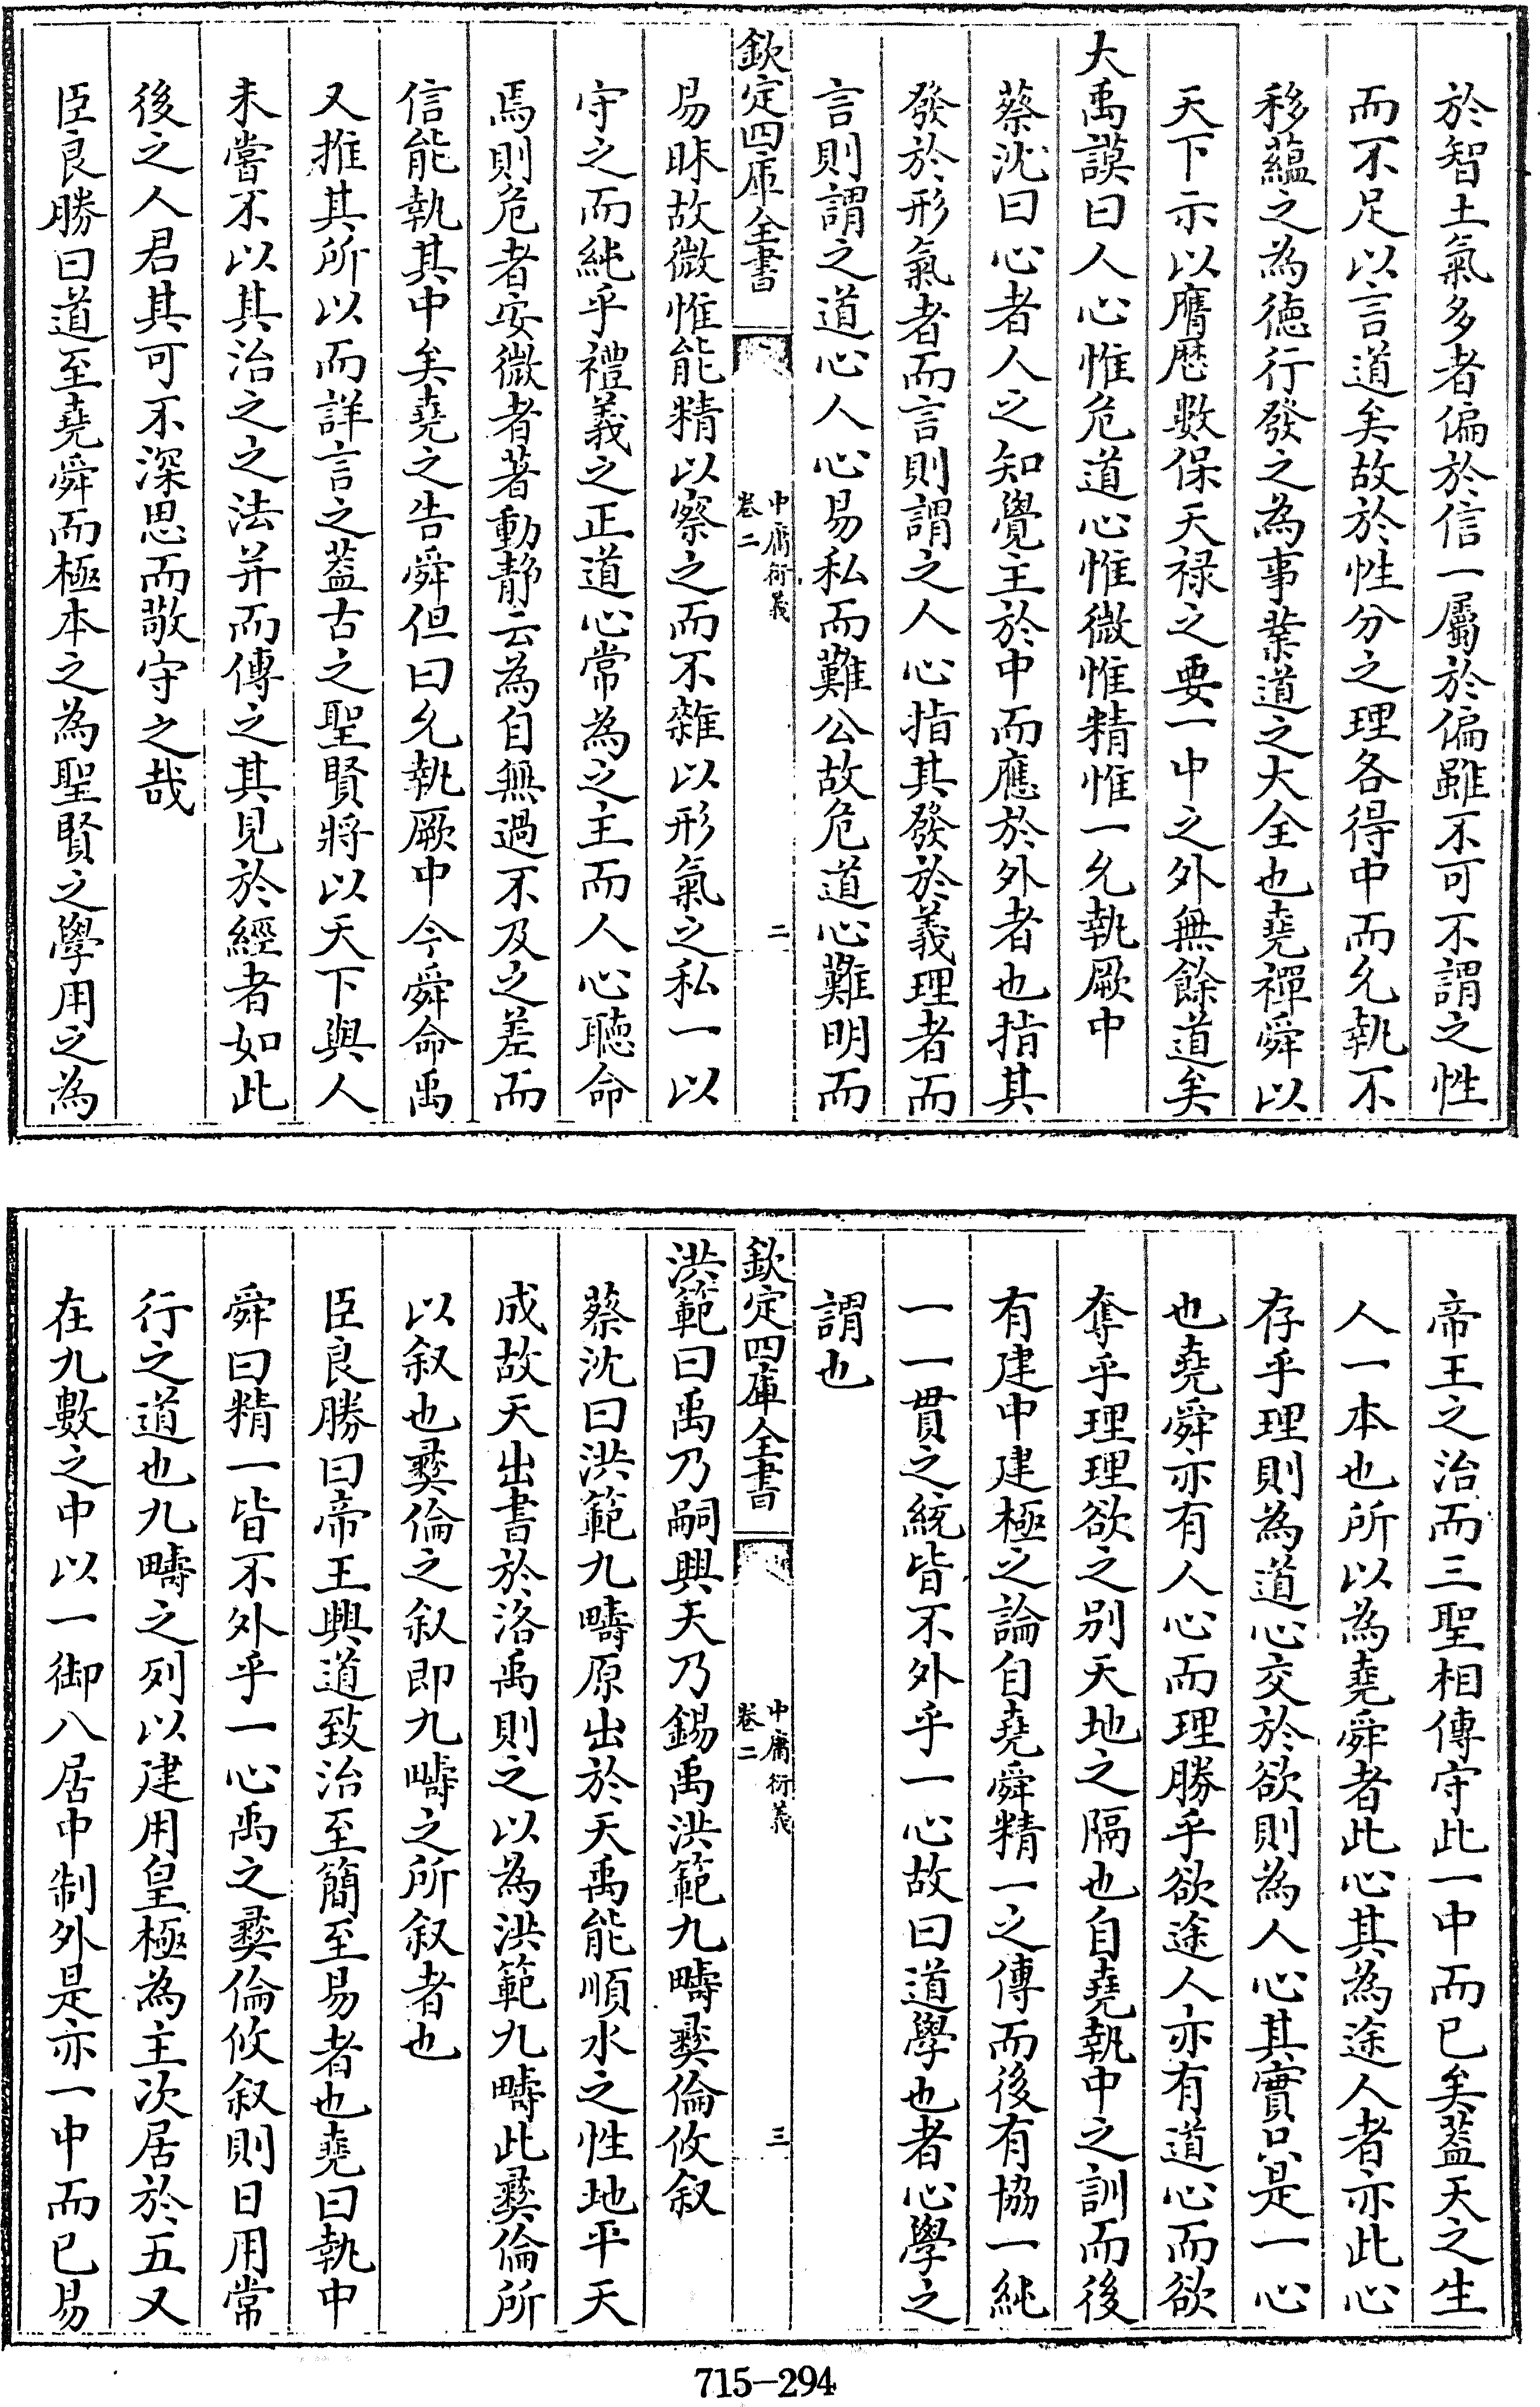 於智土氣多者偏於信一屬於偏雖不可不謂之性
而不足以言道矣故於性分之理各得中而允執不
移蘊之為徳行發之為事業道之大全也堯禪舜以
天下示以膺厯數保天禄之要一中之外無餘道矣
大禹謨曰人心惟危道心惟微惟精惟一允執厥中
蔡沈曰心者人之知覺主於中而應於外者也指其
發於形氣者而言則謂之人心指其發於義理者而
言則謂之道心人心易私而難公故危道心難明而
欽定四庫全書
中庸衍義
卷二
二
易昧故微惟能精以察之而不雜以形氣之私一以
守之而純乎禮義之正道心常為之主而人心聽命
焉則危者安微者著動静云為自無過不及之差而
信能執其中矣堯之告舜但曰允執厥中今舜命禹
又推其所以而詳言之蓋古之聖賢將以天下與人
未嘗不以其治之之法并而傳之其見於經者如此
後之人君其可不深思而敬守之哉
臣良勝曰道至堯舜而極本之為聖賢之學用之為
帝王之治而三聖相傳守此一中而已矣蓋天之生
人一本也所以為堯舜者此心其為途人者亦此心
存乎理則為道心交於欲則為人心其實只是一心
也堯舜亦有人心而理勝乎欲途人亦有道心而欲
奪乎理理欲之别天地之隔也自堯執中之訓而後
有建中建極之論自堯舜精一之傳而後有協一純
一一貫之統皆不外乎一心故曰道學也者心學之
謂也
欽定四庫全書
中庸衍義
卷二
三
洪範曰禹乃嗣興天乃錫禹洪範九疇彛倫攸叙
蔡沈曰洪範九疇原出於天禹能順水之性地平天
成故天出書於洛禹則之以為洪範九疇此彛倫所
以叙也彛倫之叙即九疇之所叙者也
臣良勝曰帝王興道致治至簡至易者也堯曰執中
舜曰精一皆不外乎一心禹之彛倫攸叙則日用常
行之道也九疇之列以建用皇極為主次居於五又
在九數之中以一御八居中制外是亦一中而已易
715-294